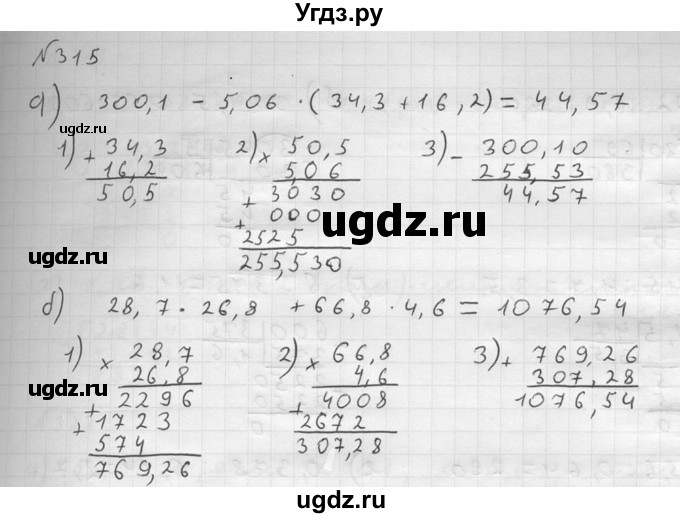 Угдз.ру
№315
а) 300,1 - 5,06 · (34,3 + 16,2) = 44,57
ugdz.ru
1) + 34,3
16,2
50,5
2) × 50,5
5,06
+ 3030
+ 000
2525
255,530
3) - 300,10
255,53
44,57
ugdz.ru
ugdz.ru
б) 28,7 · 26,8 + 66,8 · 4,6 = 1076,54
1) × 28,7
26,8
+ 2296
+ 1723
574
769,26
2) × 66,8
4,6
+ 4008
2672
307,28
3) + 769,26
307,28
1076,54
ugdz.ru
ugdz.ru
ugdz.ru
ugdz.ru